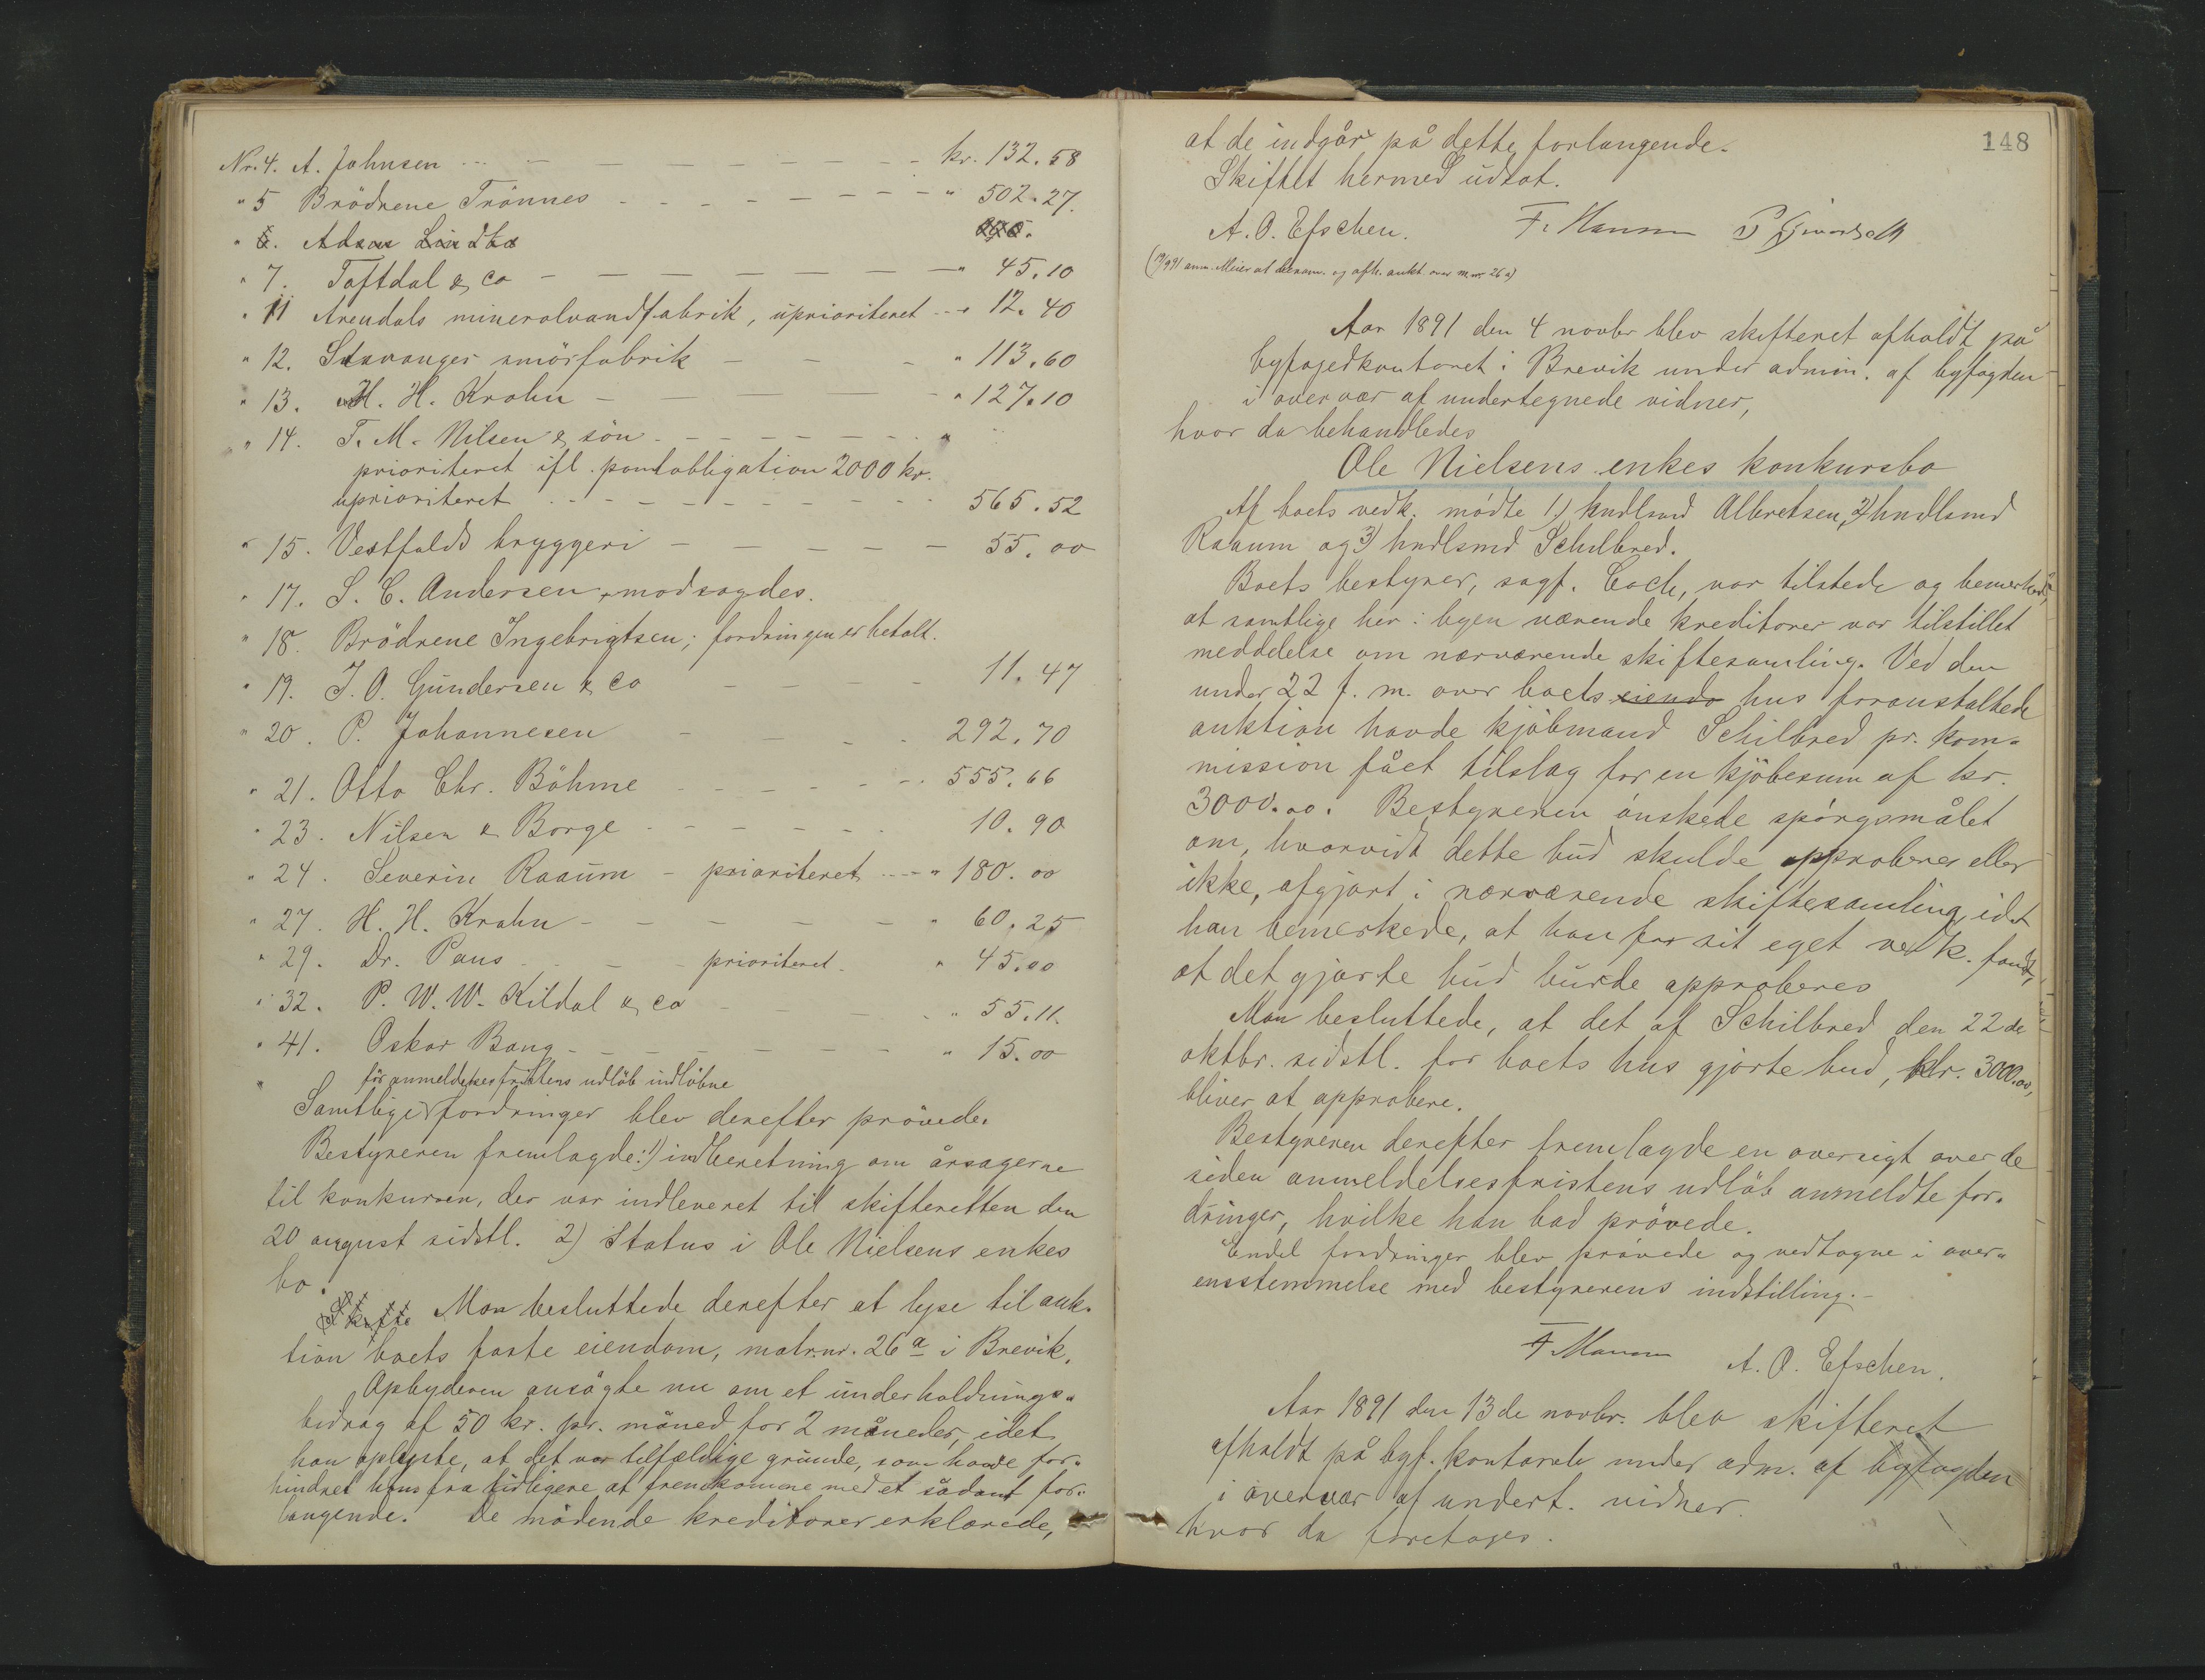 Nr. 4. A. Johnsen kr. 132.58
" 5 Brödrene Trönnes " 502.27.
" 7. Toftdal & co " 45.10
" 11 Arendals mineralvandfabrik, uprioriteret " 12.40
" 12. Stavanger smörfabrik " 113.60
" 13. H. H. Krohn " 127.10
" 14. T. M. Nilsen & sön "
prioriteret ifl. pantobligation 2000 kr.
uprioriteret 565.52
" 15. Vestfolds bryggeri 55.00
" 17. S. C. Andersen, modsagdes.
" 18. Brödrene Ingebrigtsen; fordringen er betalt.
" 19. J. O. Gundersen & co 11.47
" 20. P. Johannesen 292.70
" 21. Otto Chr. Böhme 555.66
" 23. Nilsen & Borge 10.90
" 24. Severin Raaum - prioriteret " 180.00
" 27. H. H. Krohn " 60.25
" 29. Dr. Paus prioriteret " 45.00
" 32. P. W. W. Kildal & co " 55.11.
" 41. Oskar Bang " 15.00
för anmeldelsesfristens udlöb indlöbne
Samtlige fordringer blev derefter prövede.
Bestyreren fremlagde: 1) indberetning om årsagerne
til konkursen, der var indleveret til skifteretten den
20 august sidstl. 2) Status i Ole Nielsens enkes
bo.
Skifte Man besluttede derefter at lyse til auk-
tion boets faste eiendom, matr. nr. 26 a i Brevik.
Opbyderen ansøgte nu om et underholdnings-
bidrag af 50 kr. pr. måned for 2 måneder, idet
han oplyste, at det var tilfældige grunde, som havde for-
hindret ham fra tidligere at fremkomme med et sådant for-
langende. De mödende kreditorer erklærede,
148
at de indgår på dette forlangende.
Skiftet hermed udsat.
A. O. Efschen. F. Hansen
Aar 1891 den 4 novbr blev skifteret afholdt på
byfogedkontoret i Brevik under admin. af byfogden
i overvær af undertegnede vidner,
hvor da behandledes
Ole Nielsens enkes konkursbo
Af boets vedk. mödte 1) hndlsmd Albretsen, 2) hndlsmd
Raaum og 3) hndlsmd Schilbred.
Boets bestyrer, sagf. Coch, var tilstede og bemerkede,
at samtlige her i byen værende kreditorer var tilstillet
meddelelse om nærværende skiftesamling. Ved den
under 22 f. m. over boets eiendo hus foranstaltede
auktion havde kjöbmand Schilbred pr. kom-
mission fået tilslag for en kjöbesum af kr.
3000.00. Bestyreren önskede spörgsmålet
om, hvorvidt dette bud skulde approberes eller
ikke, afgjort i nærværende skiftesamling, idet
han bemerkede, at han for sit eget vedk. fandt,
at det gjorte bud burde approberes
Man besluttede, at det af Schilbred den 22de
oktbr. sidstl. for boets hus gjorte bud, kr. 3000.00,
bliver at approbere.
Bestyreren derefter fremlagde en oversigt over de
siden anmeldelsesfristens udlöb anmeldte for-
dringer, hvilke han bad prövede.
Endel fordringer blev prövede og vedtagne i over-
ensstemmelse med bestyrerens indstilling.-
A. O. Efschen.
Aar 1891 den 13de novbr. blev skifteret
afholdt på byf. kontoret under adm. af byfogden
i overvær af undert. vidner.
hvor da foretages.